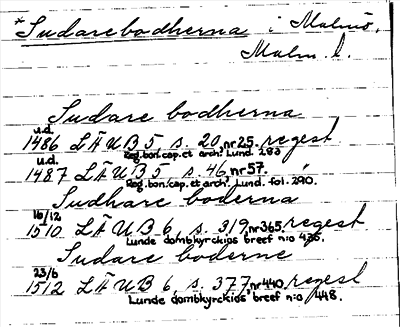 *Sudarebodherna i Malmö,
Malm. l.
Sudare bodherna
u.d.
1486 LÄUB 5 s. 20, nr 25. regest
Reg. bon. cap. et arch. Lund. 283
u.d.
1487 LÄUB 5 s. 46, nr 57. "
Reg. bon. cap. et arch. Lund. fol. 290.
Sudhare boderna
16/12
1510 LÄUB 6, s. 319, nr 365, regest
Lunde domkyrckios breef n:o 436.
Sudare boderne
23/6
1512 LÄUB 6, s. 377, nr 440, regest
Lunde domkyrckios breef n:o 448.